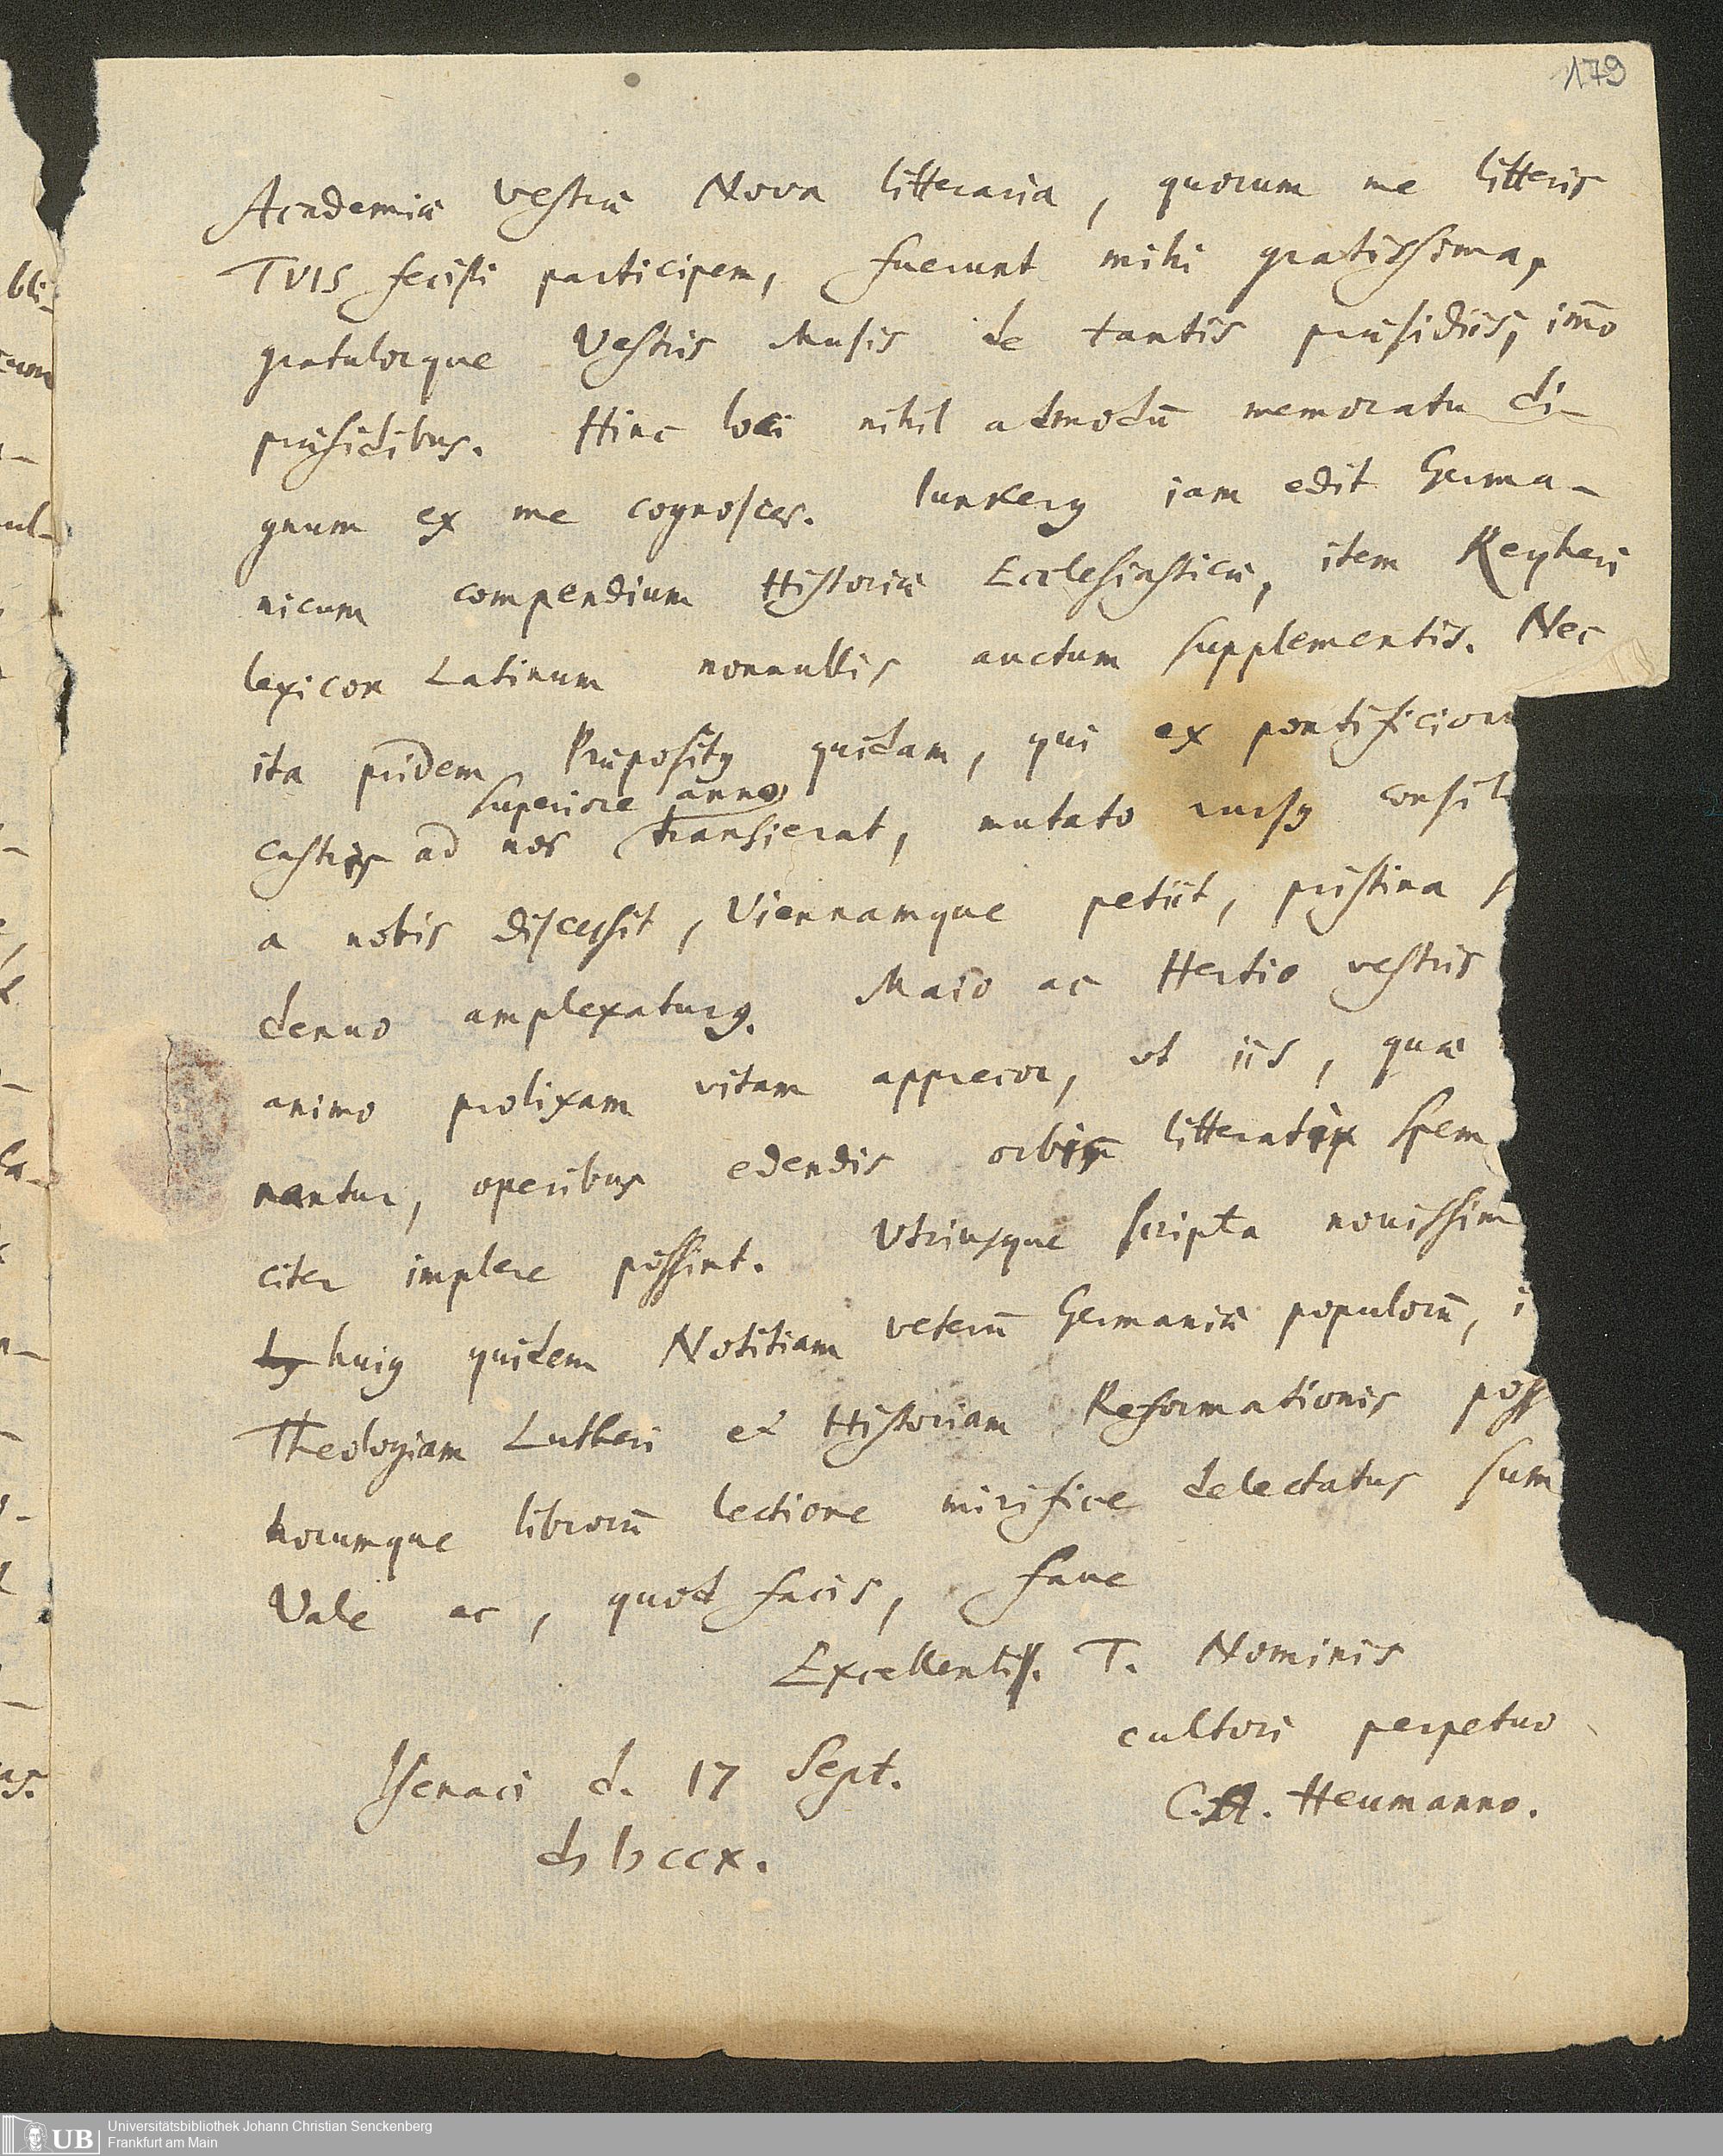 179
Academiæ vestræ Nova litteraria, quorum me litteris
TVIS fecisti participem, fuerunt mihi gratissima,
gratulorque Vestris Musis de tantis præsidiis, im̄o
præsidibus. Hinc loci nihil admodū memoratu di-
gnum ex me cognosces. Iunkerꝰ iam edit Germa-
nicum compendium Historiæ Ecclesiasticæ, item Reyheri
lexicon Latinum nonnullis auctum supplementis. Nec
ita pridem Præpositꝰ quidam, qui ex pontificior
superiore anno
castris ad nos transierat, mutato rursꝰ consil
a nobis discessit, Viennamque petiit, pristina s
denuo amplexaturꝰ. Maio ac Hertio vestris
animo prolixam vitam apprecor, vt iis, quæ
nantur, operibus edendis orbis litterati spem
citer implere possint. Vtriusque scripta nouissim
huiꝰ quidem Notitiam veterū Germaniæ populorū, i
Theologiam Lutheri et Historiam Reformationis poss
horumque librorū lectione mirifice delectatus sum
Vale ac, quod facis, faue
Excellentiss. T. Nominis
cultori perpetuo
Isenaci d. 17 Sept.
C. A. Heumanno.
cIↄ Iↄ ccx.
bli-
ul-
ca-
as.
UB
Universitätsbibliothek Johann Christian Senckenberg
Frankfurt am Main